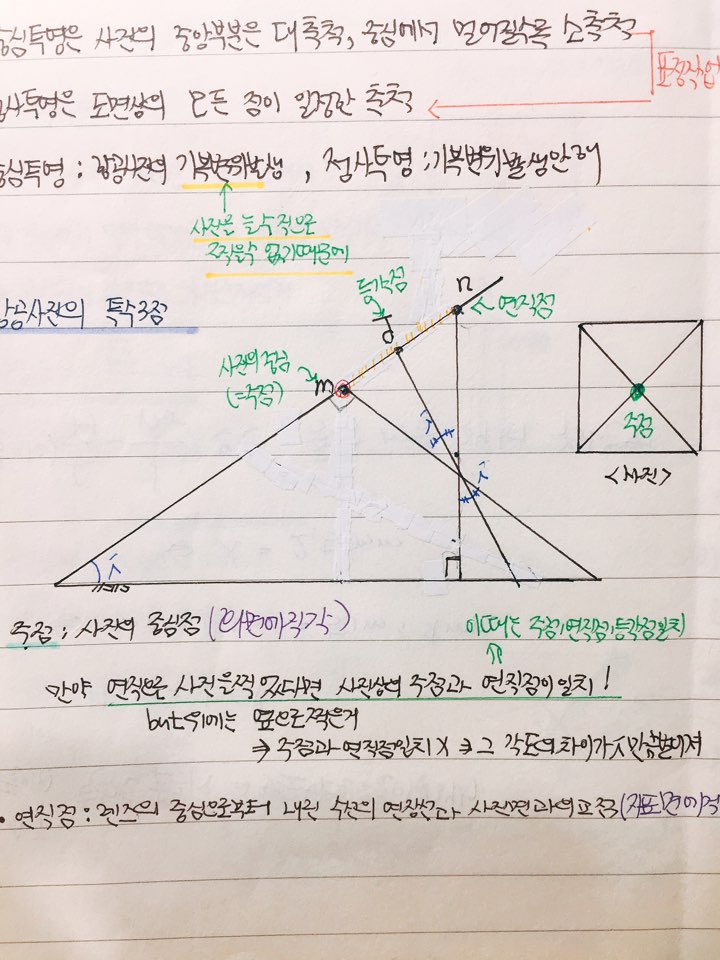 중심투영은 사진의 중앙부분은 대축척, 중심에서 멀어질수록 소축척
표정작업
정사투영은 도면상의 모든 점이 일정한 축척
중심투영 : 항공사진의 기복변위발생 , 정사투영 : 기복변위발생안해
사진은 눌수적으로
찍을수 없기때문에
항공사진의 특수3점
등각점
n
연직점
j
사진의중심
(=주점)
m
i
i
i
주점
<사진>
주점 : 사진의 중심점 (화면에직각)
이때는 주점,연직점,등각점일치
만약 연직으로 사진을찍었다면 사진상의 주점과 연직점이 일치!
but 위에는 옆으로찍은거
⇒ 주점과 연직점일치X ⇒ 그 각도의 차이가 i만큼벌어져
• 연직점 : 렌즈의 중심으로부터 내린 수선의 연장선과 사진면과의교점 (지표면에직